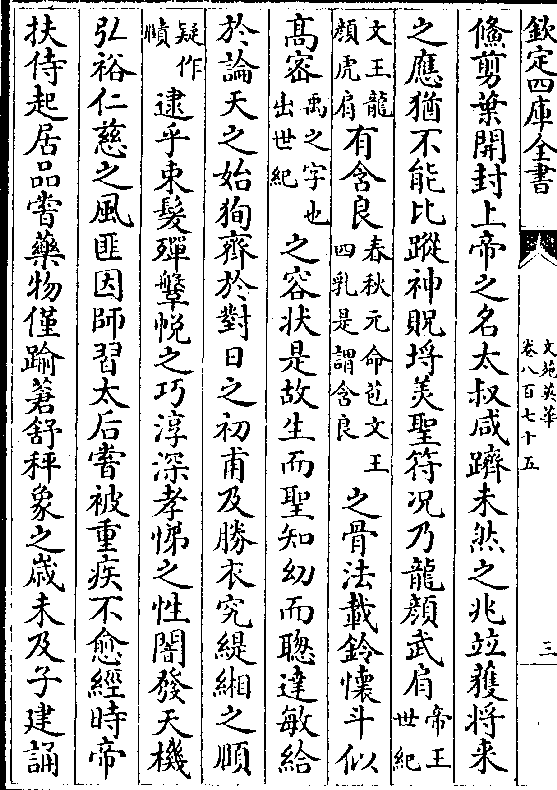 欽定四庫全書
文苑英華
卷八百七十五
三
翛剪葉開封上帝之名太叔咸躋未然之兆竝獲将来
之應猶不能比蹤神貺埒羙聖符况乃龍顔武肩帝王世紀
文王龍顔虎肩有含良春秋元命苞文王四乳是謂含良之骨法載鈴懐斗似
髙密禹之字也出世紀之容状是故生而聖知幼而聰達敏給
於論天之始狥齊於對日之初甫及勝衣究緹緗之順
疑作賾逮乎束髮殫鞶帨之巧淳深孝悌之性闇發天機
弘裕仁慈之風匪因師習太后甞被重疾不愈經時帝
扶侍起居品甞藥物僅踰蒼舒秤象之歳未及子建誦